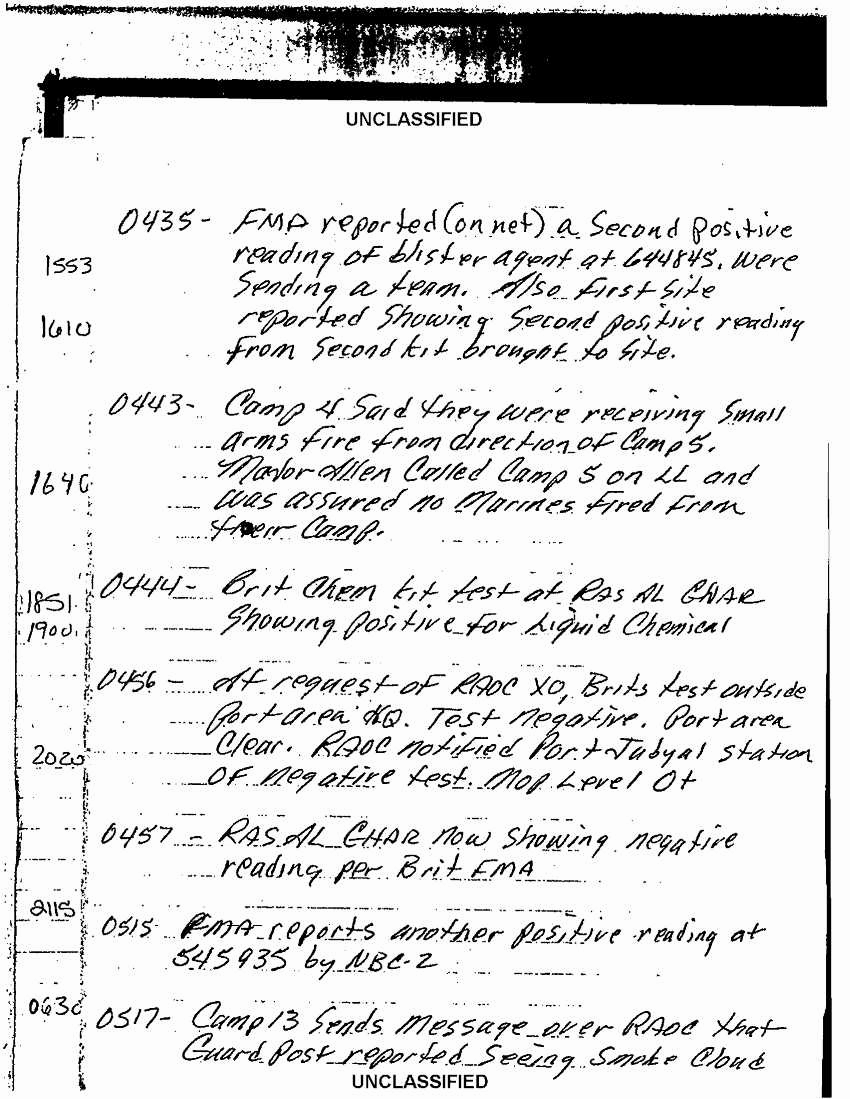 UNCLASSIFIED
0435- FMA reported (on net) a Second positive
1553
reading of blister agent at 644845. Were
Sending a team. Also first site
1610
reported Showing Second positive reading
from Second kit brought to site.
0443- Camp 4 Said they were receiving Small
arms fire from direction of Camp 5.
1640
Major Allen Called Camp 5 on LL and
was assured no Marines fired from
their Camp.
0444- Brit Chem kit test at RAS AL GHAR
1851
1900
Showing positive for Liquid Chemical
0456- At request of RAOC XO, Brits test outside
Port area HQ. Test negative. Port area
2020
Clear. RAOC notified Port Jubyal station
OF negative test. Mop Level 0+
0457- RAS AL GHAR now Showing negative
reading per Brit FMA
2115
0515 FMA reports another positive reading at
545935 by NBC-2
0630
0517- Camp 13 Sends Message over RAOC that
Guard Post reported Seeing Smoke Cloud
UNCLASSIFIED